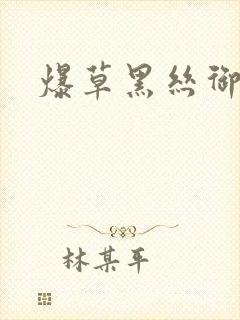 爆草黑丝御
林某平